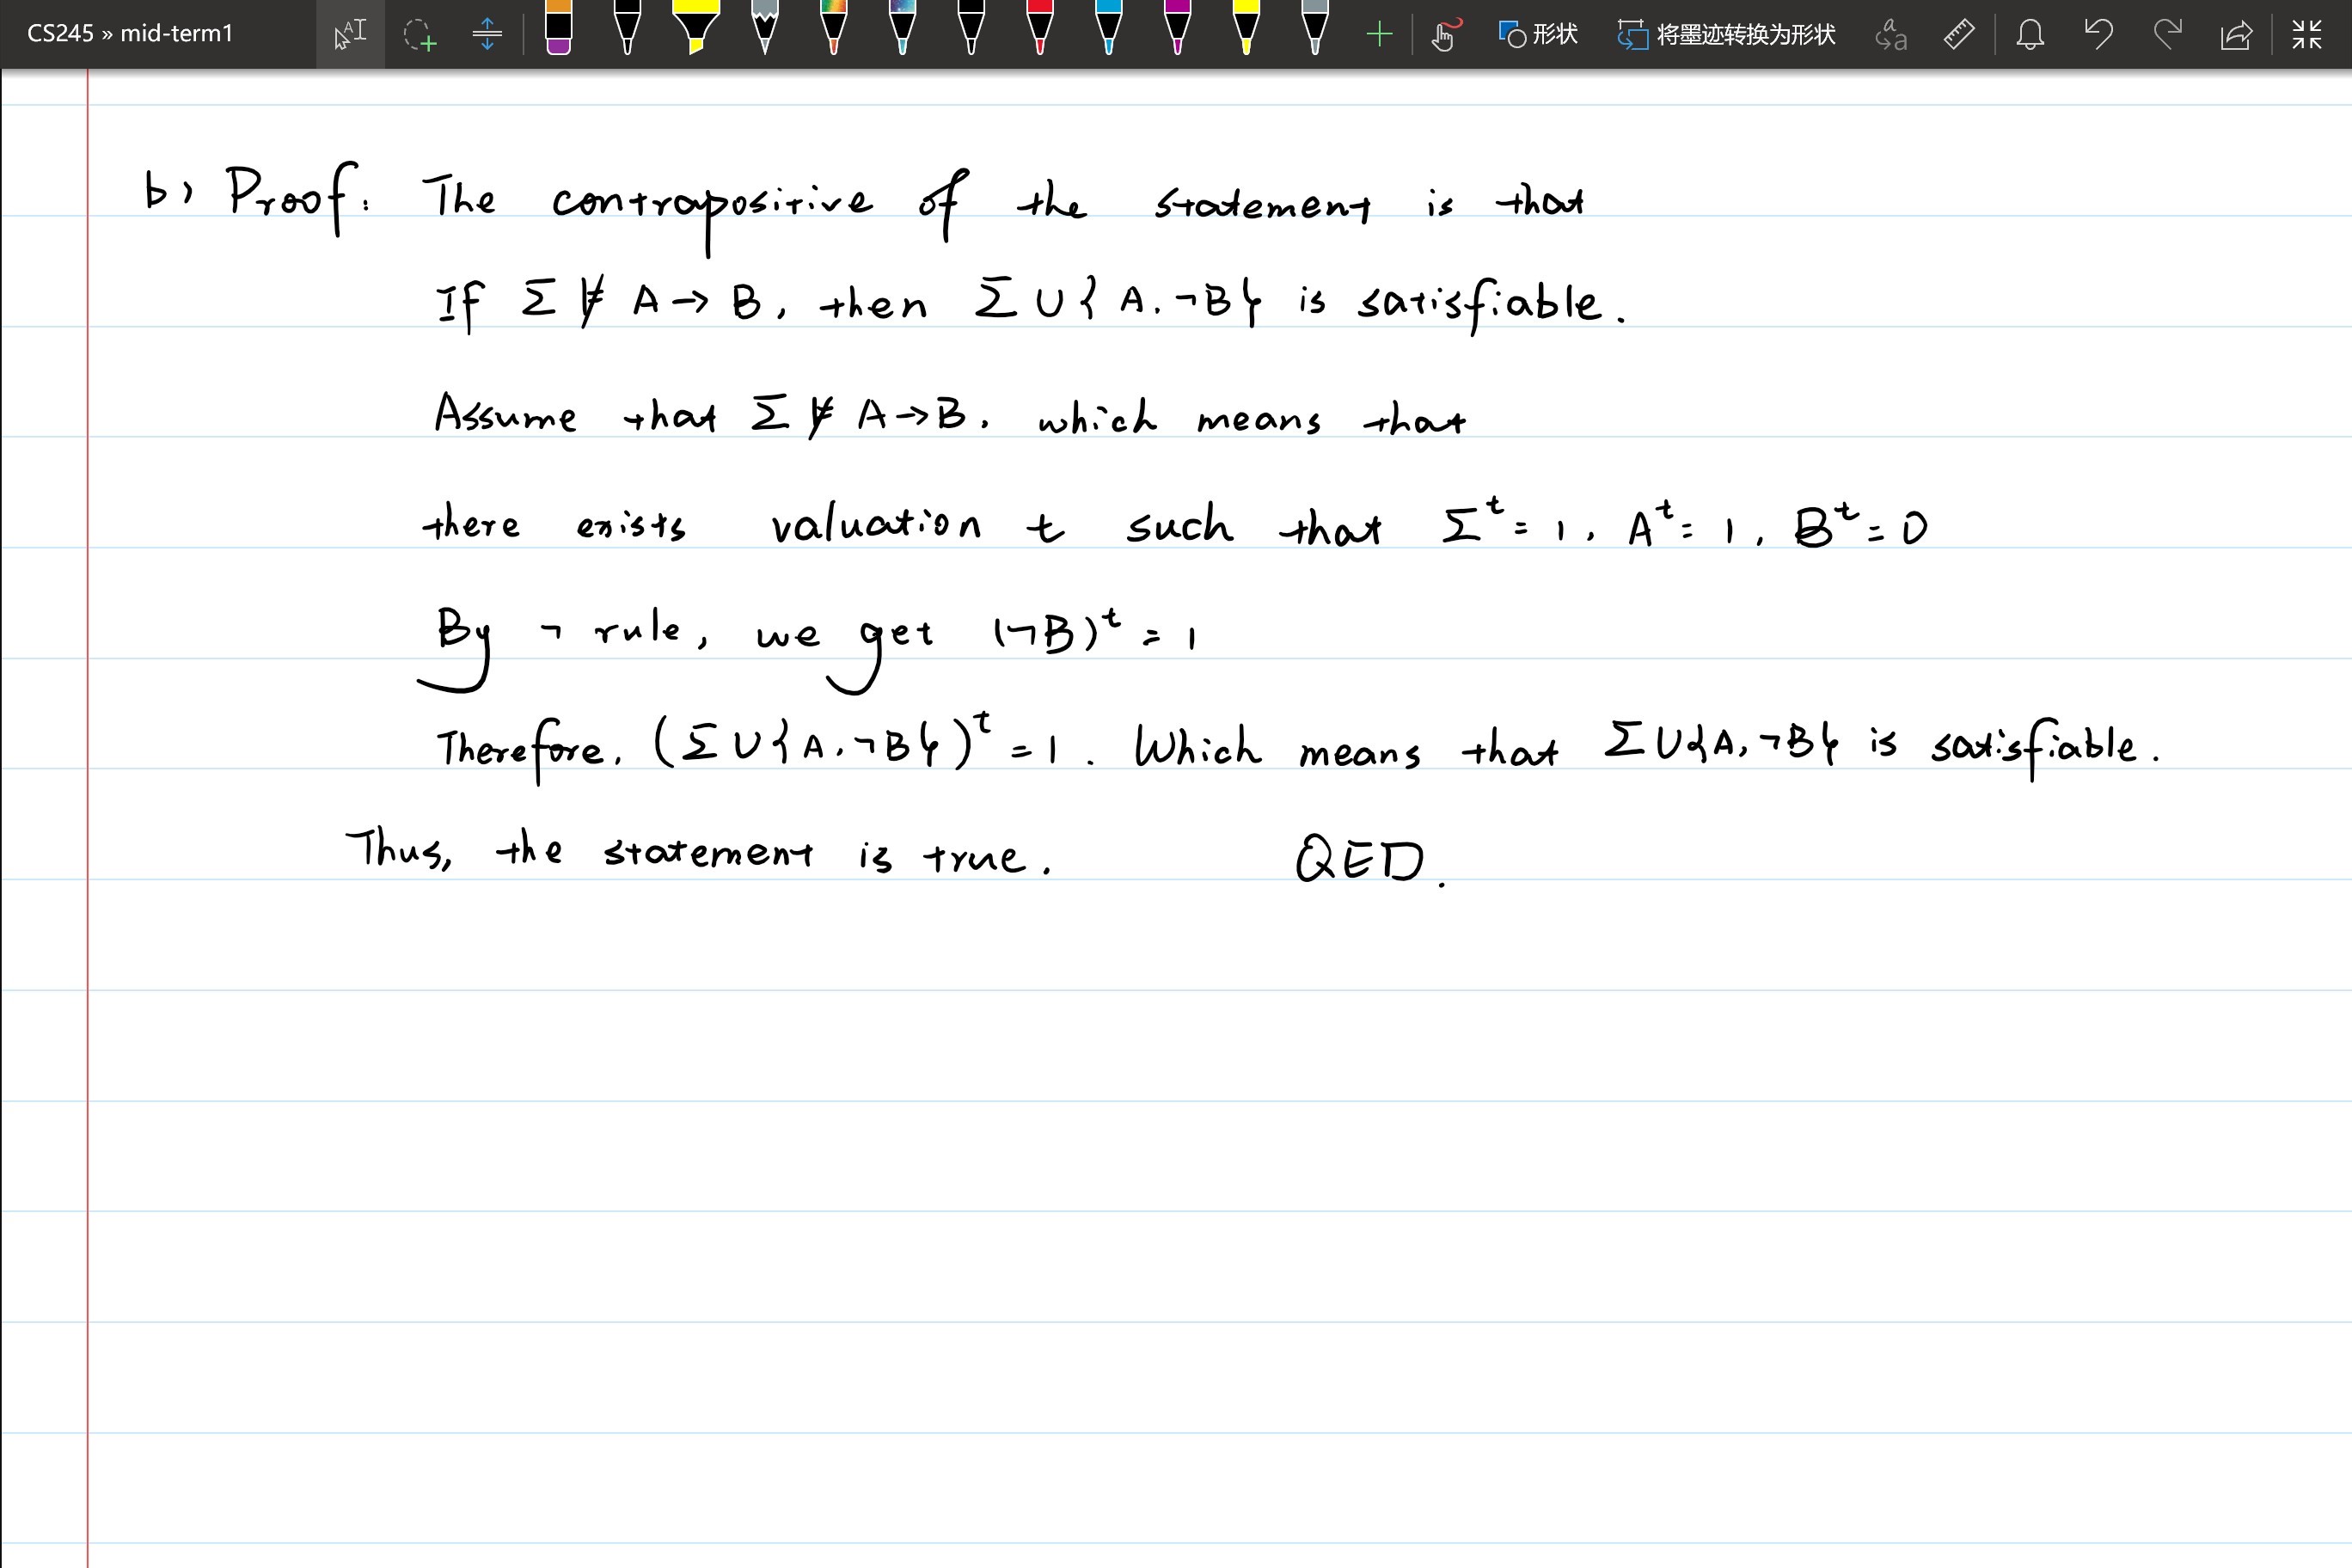 CS245 » mid-term1
形状
将墨迹转换为形状
b) Proof: The contrapositive of the statement is that
If Σ ⊭ A → B, then Σ ∪ {A, ¬B} is satisfiable.
Assume that Σ ⊭ A → B, which means that
there exists valuation t such that Σᵗ = 1, Aᵗ = 1, Bᵗ = 0
By ¬ rule, we get (¬B)ᵗ = 1
Therefore, (Σ ∪ {A, ¬B})ᵗ = 1. Which means that Σ ∪ {A, ¬B} is satisfiable.
Thus, the statement is true. QED.